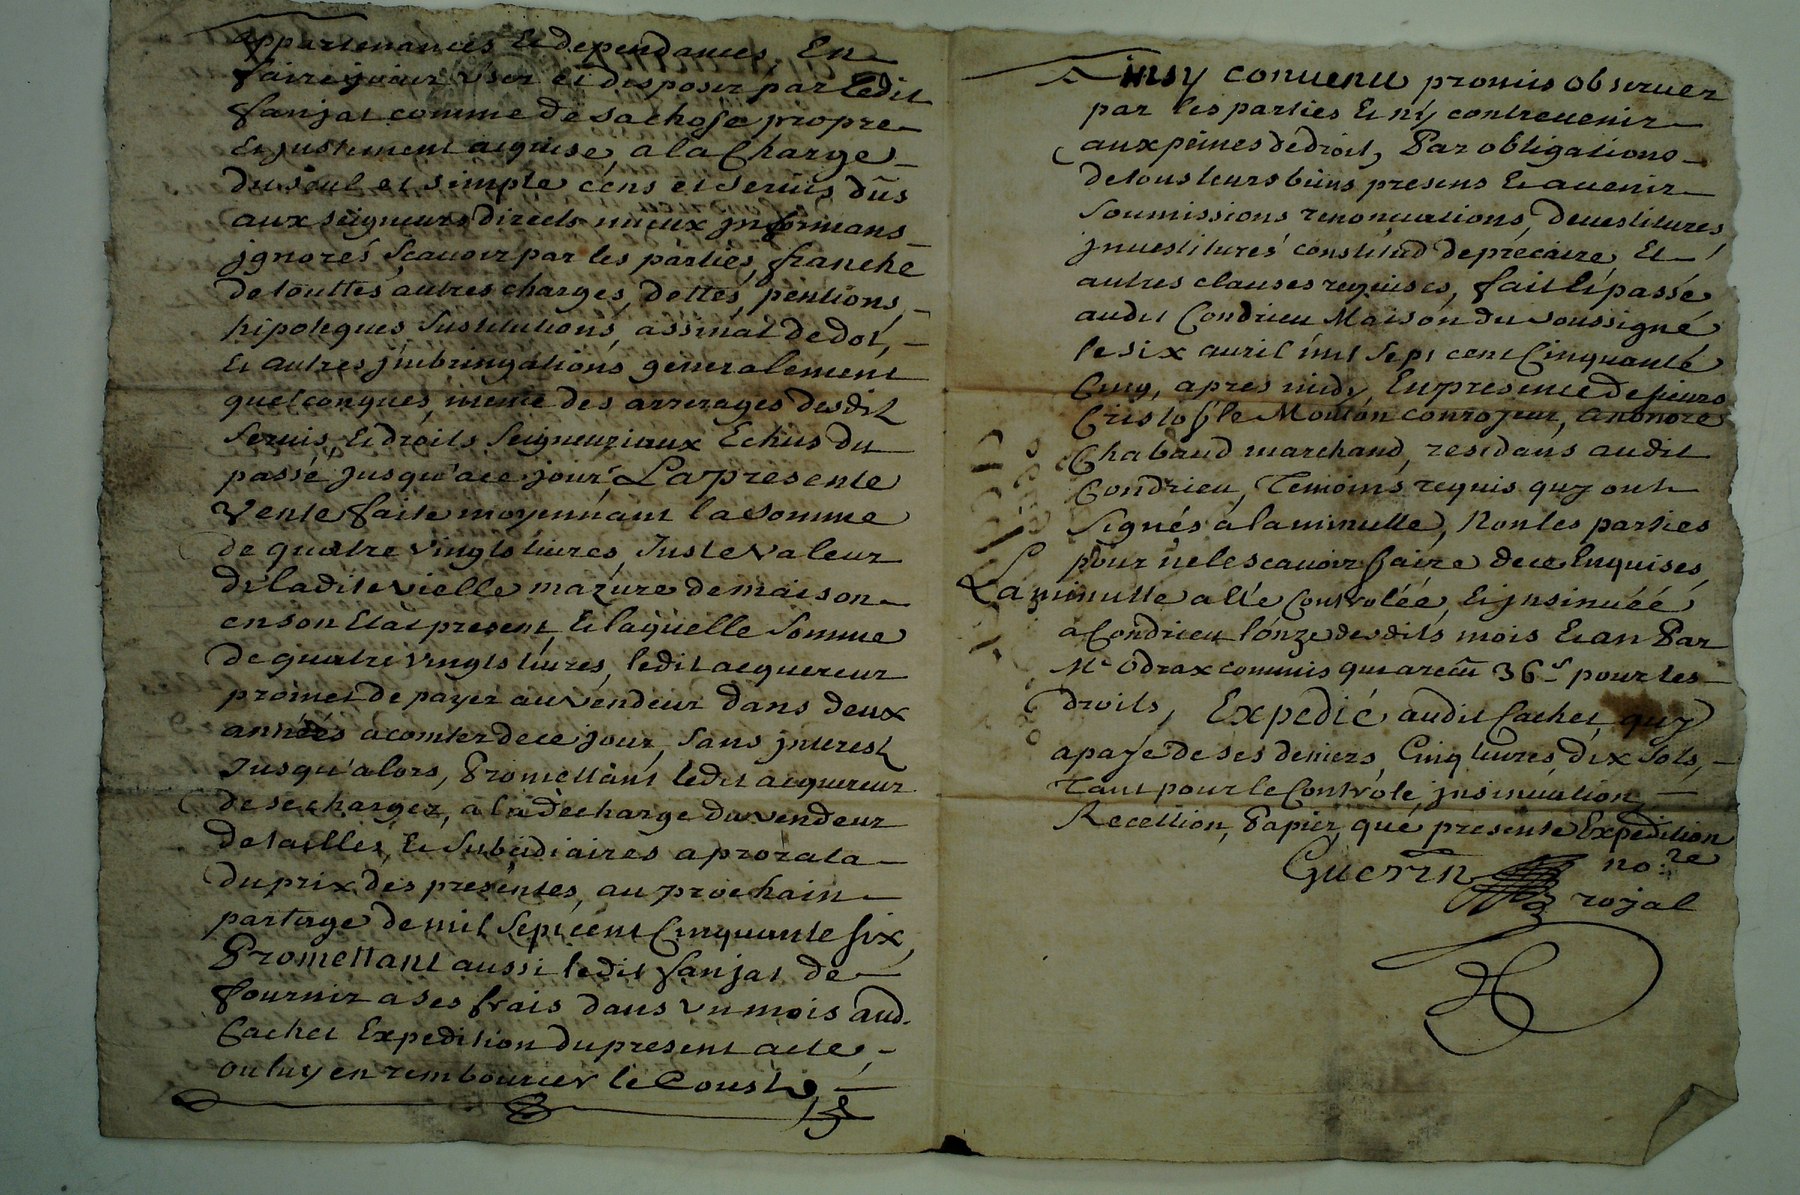 appartenances et dependances, En
faire jouir user et disposer par ledit
Sanjat comme de sa chose propre
Et justement aquise, a la Charge
du seul et simple cens et servis dûs
aux seigneurs directs mieux jnformans
jgnorés scavoir par les parties, franche
de touttes autres charges, dettes, pentions,
hipoteques substitutions, assinat de dot,
Et autres jmbringations generalement
quelconques, meme des arrerages desdit
servis, Et droits Seigneuriaux Echus du
passé jusqu'a ce jour, La presente
Vente faite moyennant la somme
de quatre vingts livres, Juste valeur
de ladite vielle mazure de maison
en son Etat present, Et laquelle Somme
de quatre vingts livres, ledit acquereur
promet de payer au vendeur dans deux
années a comter de ce jour, sans jnterest
Jusqu'alors, Promettant ledit acquereur
de se charger, a la decharge du vendeur
de tailles, Et Subsidiaires a prorata
du prix des presentes, au prochain
partage de mil Sept cent Cinquante six,
Promettant aussi ledit Sanjat de
fournir a ses frais dans un mois aud.
Cachet Expedition du present acte,
ou luy en rembourcer le Coust,
Ainsy convenu promis observer
par les parties Et n'y contrevenir
aux peines de droit, Par obligations
de tous leurs biens presens Et avenir
soumissions renonciations, devestitures
jnvestitures constitud de precaire, Et
autres clauses requises, fait Et passé
audit Condrieu Maison du soussigné
le six avril mil Sept cent Cinquante
Cinq, apres midy, En presence de sieurs
Cristofle Mouton conrojeur, a honoré
Chabaud marchand, residans audit
Condrieu, Temoins requis quy ont
Signés a la minutte, Non les parties
pour ne le scavoir faire de ce Enquises,
La minutte a Eté Controlée, Et jnsinuéé
a Condrieu l'onze desdits mois Et an Par
Me Odrax commis qui a recu 36 s pour les
droits, Expedié audit Cachet, quy
a payé de ses deniers, Cinq livres, dix sols,
Tant pour le Controle, jnsinuation,
Recettion, Papier, que presente Expedition
Guerin no.re
royal